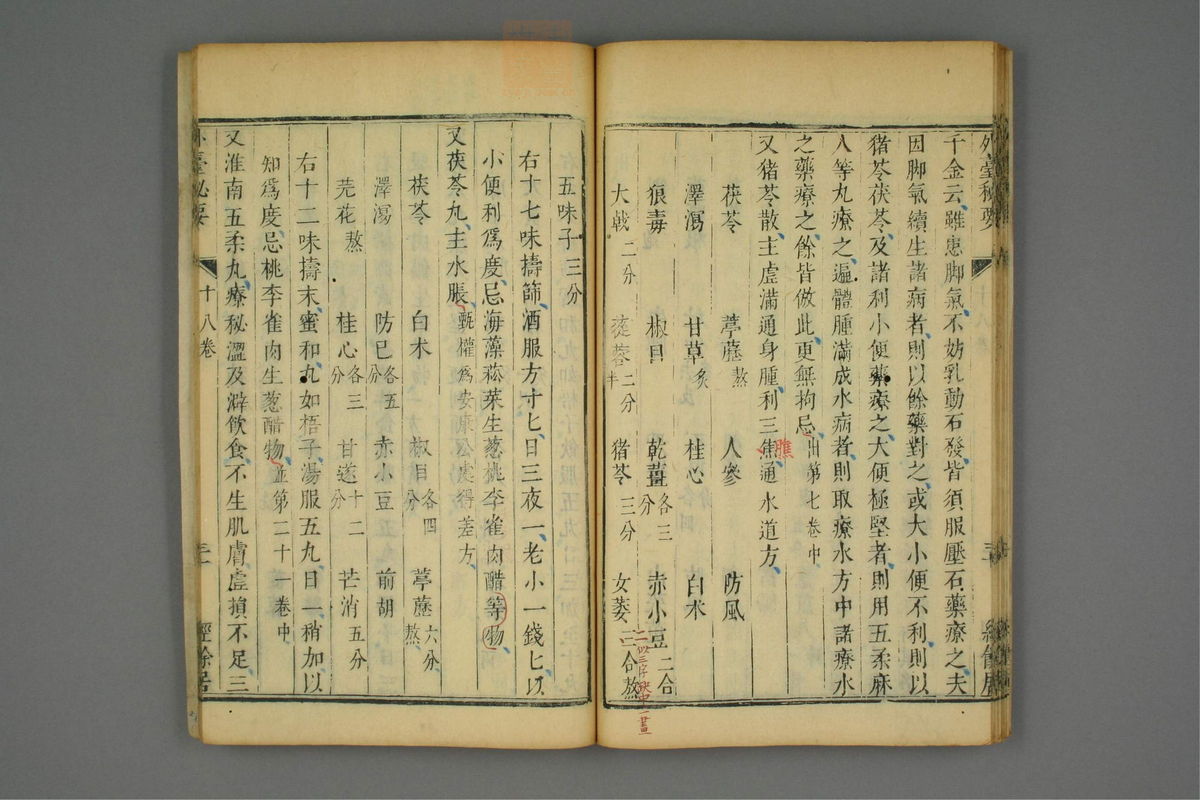 外臺秘要
千金云雖患脚氣不妨乳動石發皆須服壓石藥療之夫
因脚氣續生諸病者則以餘藥對之或大小便不利則以
猪苓茯苓及諸利小便藥療之大便極堅者則用五柔麻
人等丸療之遍體腫滿成水病者則取療水方中諸療水
之藥療之餘皆倣此更無拘忌出第七卷中
又猪苓散主虛滿通身腫利三焦通水道方
膲
茯苓 葶藶熬 人參 防風
澤瀉 甘草炙 桂心 白朮
狼毒 椒目 乾薑各三分 赤小豆二合
大戟二分 蓯蓉二分半 猪苓三分 女萎三合熬
五味子三分
右十七味擣篩酒服方寸匕日三夜一老小一錢匕以
小便利爲度忌海藻菘菜生葱桃李雀肉醋等物
又茯苓丸主水脹甄權爲安康公處得差方
茯苓 白朮 椒目各四分 葶藶六分熬
澤瀉 防已各五分 赤小豆 前胡
芫花熬 桂心各三分 甘遂十二分 芒消五分
右十二味擣末蜜和丸如梧子湯服五丸日一稍加以
知爲度忌桃李雀肉生葱醋物並第二十一卷中
又淮南五柔丸療秘澀及澼飲食不生肌膚虛損不足三
外臺秘要 十八卷 三 經餘居